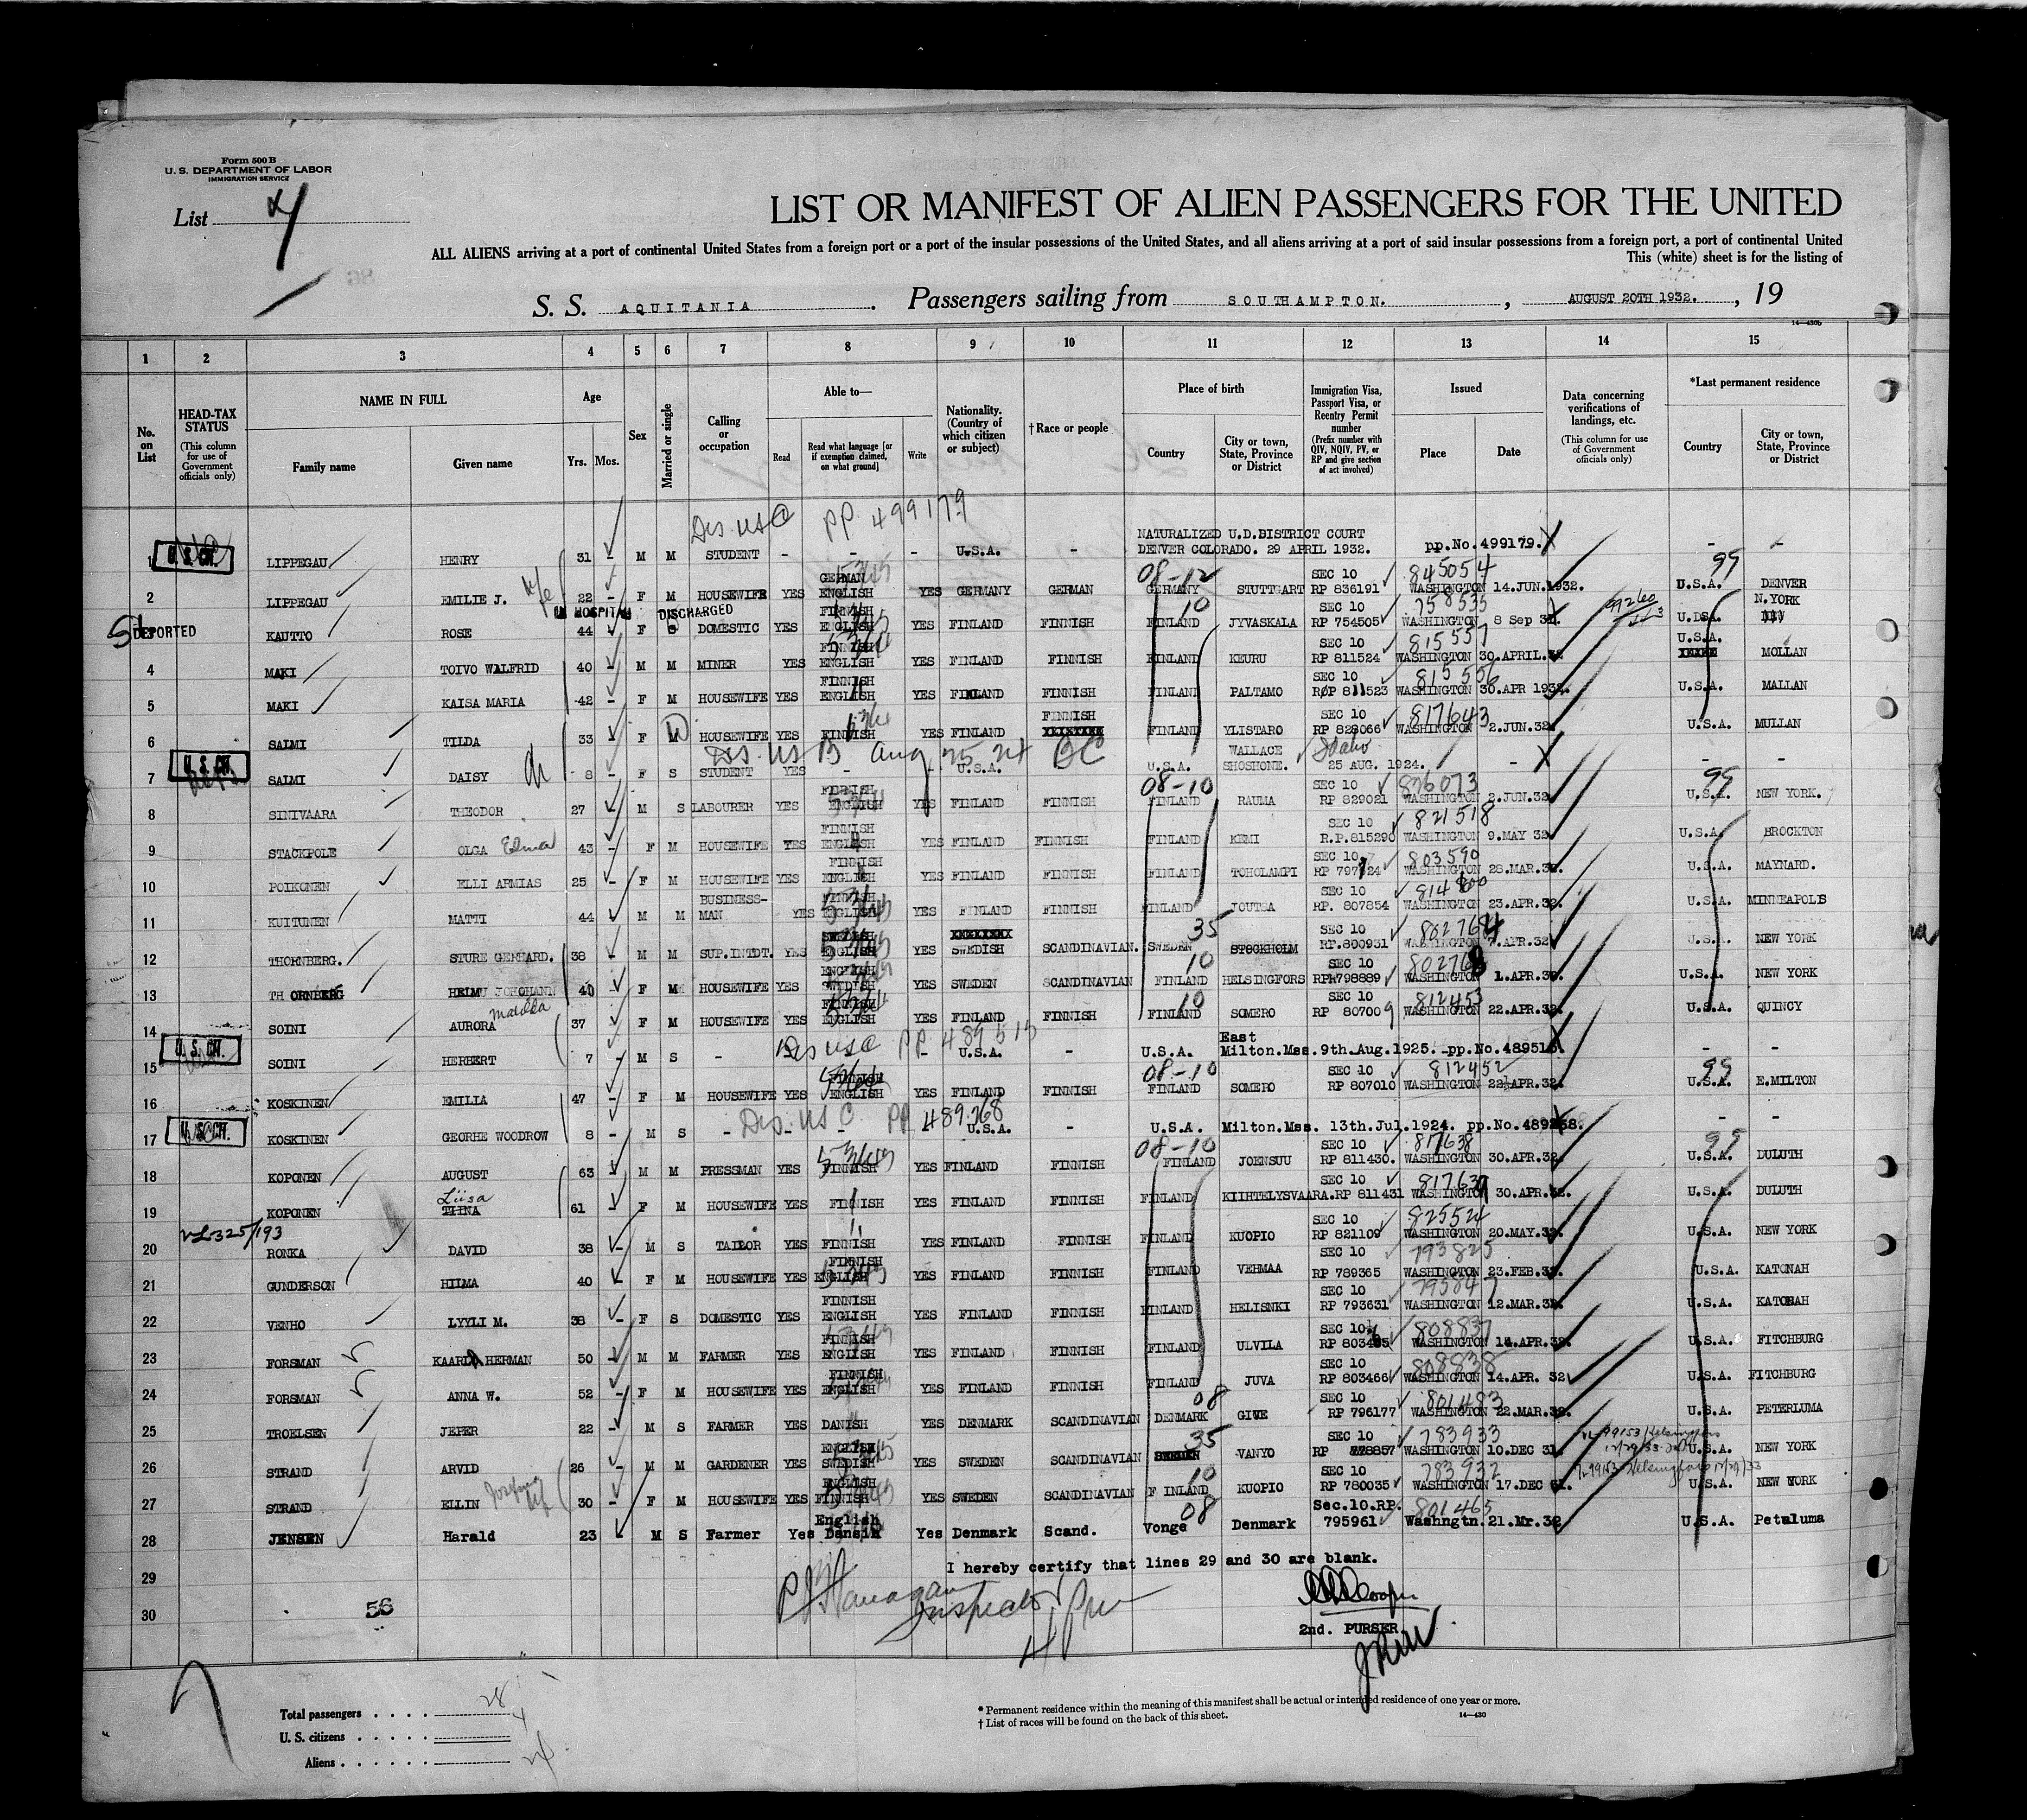 Form 500 B
U. S. DEPARTMENT OF LABOR
IMMIGRATION SERVICE
List 4
LIST OR MANIFEST OF ALIEN PASSENGERS FOR THE UNITED
ALL ALIENS arriving at a port of continental United States from a foreign port or a port of the insular possessions of the United States, and all aliens arriving at a port of said insular possessions from a foreign port, a port of continental United
This (white) sheet is for the listing of
S. S. AQUITANIA. Passengers sailing from SOUTHAMPTON. , AUGUST 20TH 1932. , 19
14—430b
1 2 3 4 5 6 7 8 9 10 11 12 13 14 15
No. on List
HEAD-TAX STATUS (This column for use of Government officials only)
NAME IN FULL
Family name Given name
Age Yrs. Mos.
Sex
Married or single
Calling or occupation
Able to— Read Read what language [or if exemption claimed, on what ground] Write
Nationality. (Country of which citizen or subject)
†Race or people
Place of birth Country City or town, State, Province or District
Immigration Visa, Passport Visa, or Reentry Permit number (Prefix number with QIV, NQIV, PV, or RP and give section of act involved)
Issued Place Date
Data concerning verifications of landings, etc. (This column for use of Government officials only)
*Last permanent residence Country City or town, State, Province or District
Dis. USC PP 499179
1 U. S. CH. LIPPEGAU HENRY 31 - M M STUDENT - - - U.S.A. - NATURALIZED U.D.BISTRICT COURT DENVER COLORADO. 29 APRIL 1932. pp.No.499179. - -
2 LIPPEGAU EMILIE J. wife 22 - F M HOUSEWIFE YES GERMAN ENGLISH YES GERMANY GERMAN 08-12 GERMANY STUTTGART SEC 10 RP 836191 845054 WASHINGTON 14.JUN.1932. 99 U.S.A. DENVER
IN HOSPITAL DISCHARGED
3 DEPORTED KAUTTO ROSE 44 - F S DOMESTIC YES FINNISH ENGLISH YES FINLAND FINNISH 10 FINLAND JYVASKALA SEC 10 RP 754505 758535 WASHINGTON 8 Sep 31. U.DSA. N.YORK
4 MAKI TOIVO WALFRID 40 - M M MINER YES FINNISH ENGLISH YES FINLAND FINNISH FINLAND KEURU SEC 10 RP 811524 815557 WASHINGTON 30.APRIL.32 U.S.A. MOLLAN
5 MAKI KAISA MARIA 42 - F M HOUSEWIFE YES FINNISH ENGLISH YES FINLAND FINNISH FINLAND PALTAMO SEC 10 RP 811523 815556 WASHINGTON 30.APR 1932. U.S.A. MALLAN
6 SALMI TILDA 33 - F M W HOUSEWIFE YES FINNISH YES FINLAND FINNISH FINLAND YLISTARO SEC 10 RP 828066 817643 WASHINGTON 2.JUN.32 U.S.A. MULLAN
Dis. US B Aug 25 24 BC
7 U. S. CH. SALMI DAISY 8 - F S STUDENT YES - - U.S.A. U.S.A. WALLACE SHOSHONE. Idaho 25 AUG. 1924. - - -
8 SINIVAARA THEODOR 27 M S LABOURER YES FINNISH ENGLISH YES FINLAND FINNISH 08-10 FINLAND RAUMA SEC 10 RP 829021 826073 WASHINGTON 2.JUN.32 99 U.S.A. NEW YORK.
9 STACKPOLE OLGA Elma 43 - F M HOUSEWIFE YES FINNISH ENGLISH YES FINLAND FINNISH FINLAND KEMI SEC 10 R.P.815290 821518 WASHINGTON 9.MAY 32 U.S.A. BROCKTON
10 POIKONEN ELLI ARMIAS 25 - F M HOUSEWIFE YES FINNISH ENGLISH YES FINLAND FINNISH FINLAND TOHOLAMPI SEC 10 803590 WASHINGTON 28.MAR.32. U.S.A. MAYNARD.
11 KUITUNEN MATTI 44 M M BUSINESS-MAN YES FINNISH ENGLISH YES FINLAND FINNISH FINLAND JOUTSA SEC 10 RP. 807854 WASHINGTON 23.APR.32. U.S.A. MINNEAPOLS
12 THORNBERG. STURE GERHARD. 38 - M M SUP.INTDT. YES SWEDISH ENGLISH YES SWEDISH SCANDINAVIAN. 35 SWEDEN STOCKHOLM SEC 10 RP.800931 802764 WASHINGTON 7.APR.32 U.S.A. NEW YORK
13 TH ORNBERG 40 - F M HOUSEWIFE YES ENGLISH SWEDISH YES SWEDEN SCANDINAVIAN 10 FINLAND HELSINGFORS SEC 10 RP.798889 WASHINGTON 1.APR.32. U.S.A. NEW YORK
14 SOINI AURORA Matilda 37 F M HOUSEWIFE YES FINNISH ENGLISH YES FINLAND FINNISH 10 FINLAND SOMERO SEC 10 RP 807009 812453 WASHINGTON 22.APR.32. U.S.A. QUINCY
15 U. S. CH. SOINI HERBERT 7 - M S - Dis USC PP 489515 - U.S.A. - U.S.A. East Milton.Mss. 9th.Aug.1925. pp.No.489515. - -
16 KOSKINEN EMILIA 47 - F M HOUSEWIFE YES FINNISH ENGLISH YES FINLAND FINNISH 08-10 FINLAND SOMERO SEC 10 RP 807010 812452 WASHINGTON 22.APR.32. 99 U.S.A. E.MILTON
17 U. S. CH. KOSKINEN GEORHE WOODROW 8 - M S - Dis. USC PP 489268 U.S.A. - U.S.A. Milton.Mss. 13th.Jul.1924. pp.No.489268. - -
18 KOPONEN AUGUST 63 - M M PRESSMAN YES FINNISH YES FINLAND FINNISH 08-10 FINLAND JOENSUU SEC 10 RP 811430. 817638 WASHINGTON 30.APR.32. 99 U.S.A. DULUTH
19 KOPONEN Liisa TIINA 61 - F M HOUSEWIFE YES FINNISH YES FINLAND FINNISH FINLAND KIIHTELYSVAARA. SEC 10 RP 811431 817637 WASHINGTON 30.APR.32. U.S.A. DULUTH
20 VL325/193 RONKA DAVID 38 - M S TAILOR YES FINNISH YES FINLAND FINNISH FINLAND KUOPIO SEC 10 RP 821109 82552 WASHINGTON 20.MAY.32. U.S.A. NEW YORK
21 GUNDERSON HILMA 40 - F M HOUSEWIFE YES FINNISH ENGLISH YES FINLAND FINNISH FINLAND VEHMAA SEC 10 RP 789365 793825 WASHINGTON 23.FEB.32. U.S.A. KATONAH
22 VENHO LYYLI M. 38 - F S DOMESTIC YES FINNISH ENGLISH YES FINLAND FINNISH FINLAND HELISNKI SEC 10 RP 793631 795847 WASHINGTON 12.MAR.32. U.S.A. KATONAH
23 FORSMAN KAARLO HERMAN 50 - M M FARMER YES FINNISH ENGLISH YES FINLAND FINNISH FINLAND ULVILA SEC 10 808837 WASHINGTON 14.APR.32. U.S.A. FITCHBURG
24 FORSMAN ANNA W. 52 - F M HOUSEWIFE YES FINNISH ENGLISH YES FINLAND FINNISH FINLAND JUVA SEC 10 RP 803466 808838 WASHINGTON 14.APR. 32 U.S.A. FITCHBURG
25 TROELSEN JEPER 22 - M S FARMER YES DANISH YES DENMARK SCANDINAVIAN 08 DENMARK GIVE SEC 10 RP 796177 801483 WASHINGTON 22.MAR.32. U.S.A. PETERLUMA
26 STRAND ARVID 26 - M M GARDENER YES ENGLISH SWEDISH YES SWEDEN SCANDINAVIAN 35 SWEDEN VANYO SEC 10 RP 783933 WASHINGTON 10.DEC 31. U.S.A. NEW YORK
27 STRAND ELLIN 30 - F M HOUSEWIFE YES ENGLISH FINNISH YES SWEDEN SCANDINAVIAN 10 F INLAND KUOPIO SEC 10 RP 780035 783932 WASHINGTON 17.DEC 31. U.S.A. NEW YORK
28 JENSEN Harald 23 M S Farmer Yes English Dansih Yes Denmark Scand. 08 Vonge Denmark Sec.10.RP. 795961 801465 Washngtn. 21.Mr.32 U.S.A. Petaluma
29 I hereby certify that lines 29 and 30 are blank.
30 56
Inspector
2nd. PURSER
Total passengers . . . . 28
U. S. citizens . . . . . 4
Aliens . . . . . . 24
* Permanent residence within the meaning of this manifest shall be actual or intended residence of one year or more.
† List of races will be found on the back of this sheet.
14—430